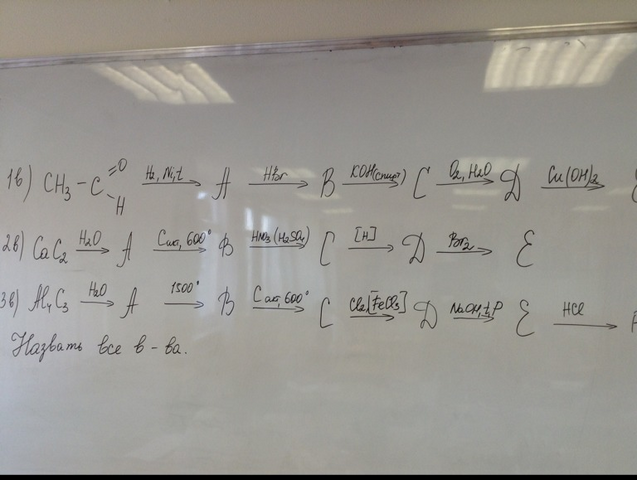 1в) CH₃-C(=O)H —H₂, Ni, t→ A —HBr→ B —KOH(спирт)→ C —O₂, H₂O→ D —Cu(OH)₂→ E
2в) CaC₂ —H₂O→ A —Cакт, 600°→ B —HNO₃(H₂SO₄)→ C —[H]→ D —Br₂→ E
3в) Al₄C₃ —H₂O→ A —1500°→ B —Cакт, 600°→ C —Cl₂[FeCl₃]→ D —NaOH, t, P→ E —HCl→ F
Назвать все в-ва.